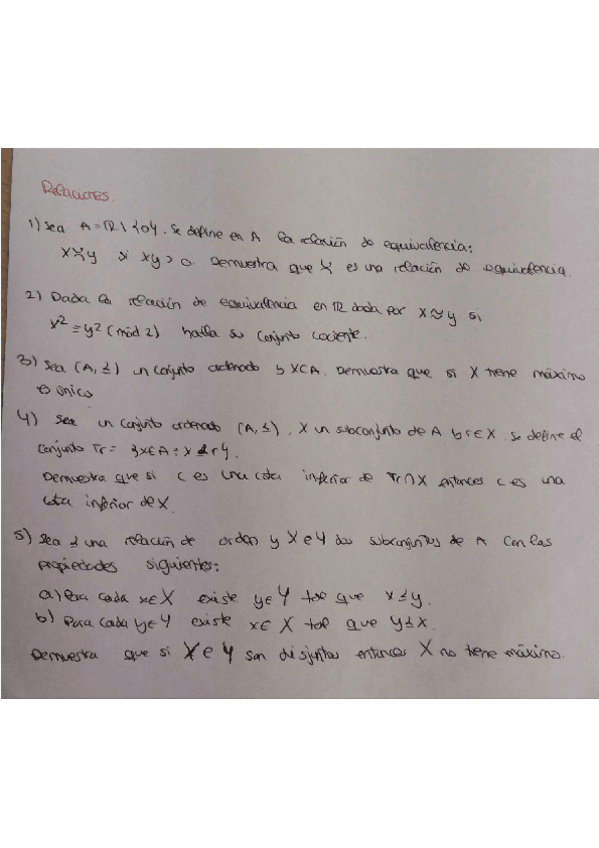 Relaciones.
1) Sea A = ℝ \ {0}. Se define en A la relación de equivalencia:
x ~ y si xy > 0. Demuestra que ~ es una relación de equivalencia.
2) Dada la relación de equivalencia en ℝ dada por x ~ y si
x² ≡ y² (mód 2) halla su conjunto cociente.
3) Sea (A, ≤) un conjunto ordenado y X⊂A. Demuestra que si X tiene máximo
es único
4) Sea un conjunto ordenado (A, ≤), X un subconjunto de A y r∈X. Se define el
conjunto Tr = {x∈A : x ≤ r}.
Demuestra que si c es una cota inferior de Tr∩X entonces c es una
cota inferior de X.
5) Sea ≤ una relación de orden y X e Y dos subconjuntos de A con las
propiedades siguientes:
a) Para cada x∈X existe y∈Y tal que x ≤ y.
b) Para cada y∈Y existe x∈X tal que y ≤ x.
Demuestra que si X e Y son disjuntos entonces X no tiene máximo.